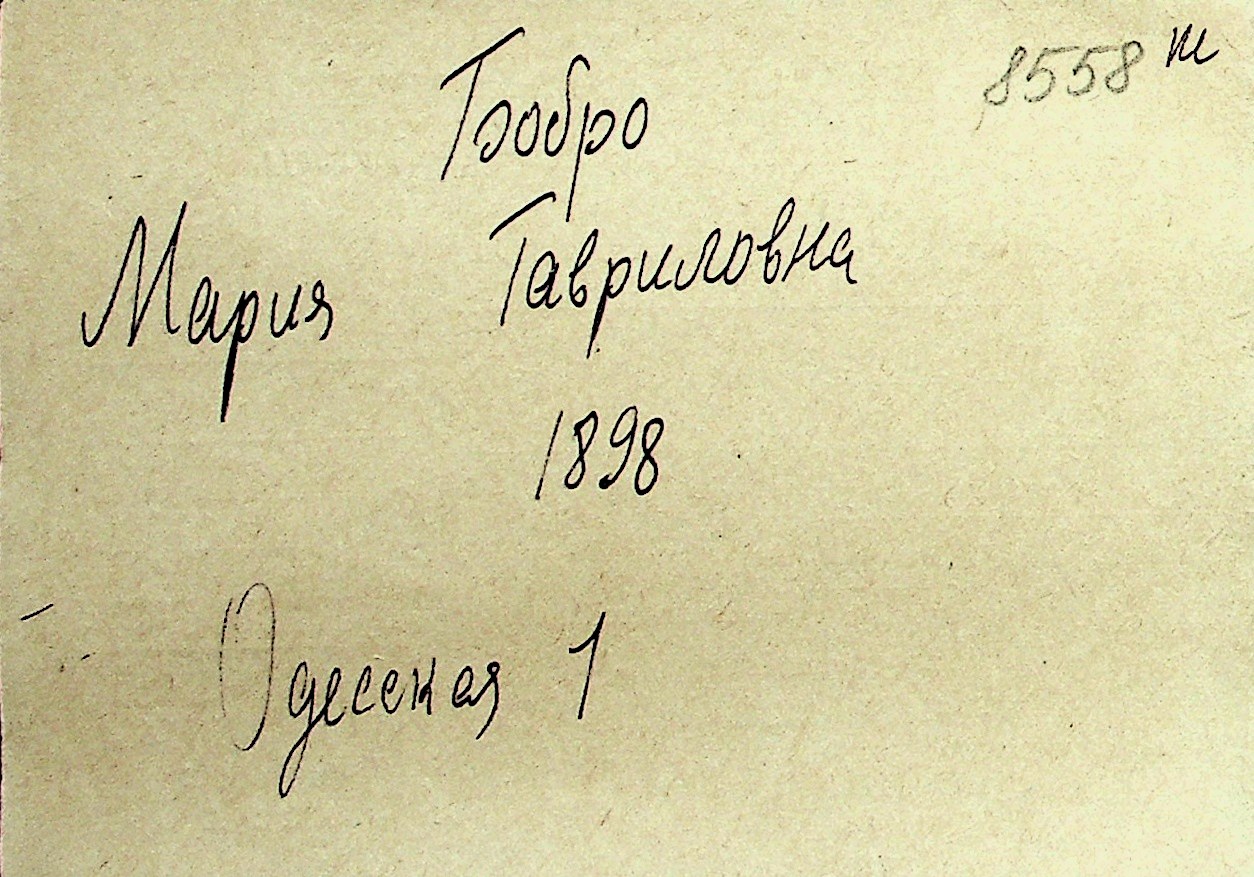 8558
Бобро
Мария Гавриловна
1898
Одесская 1